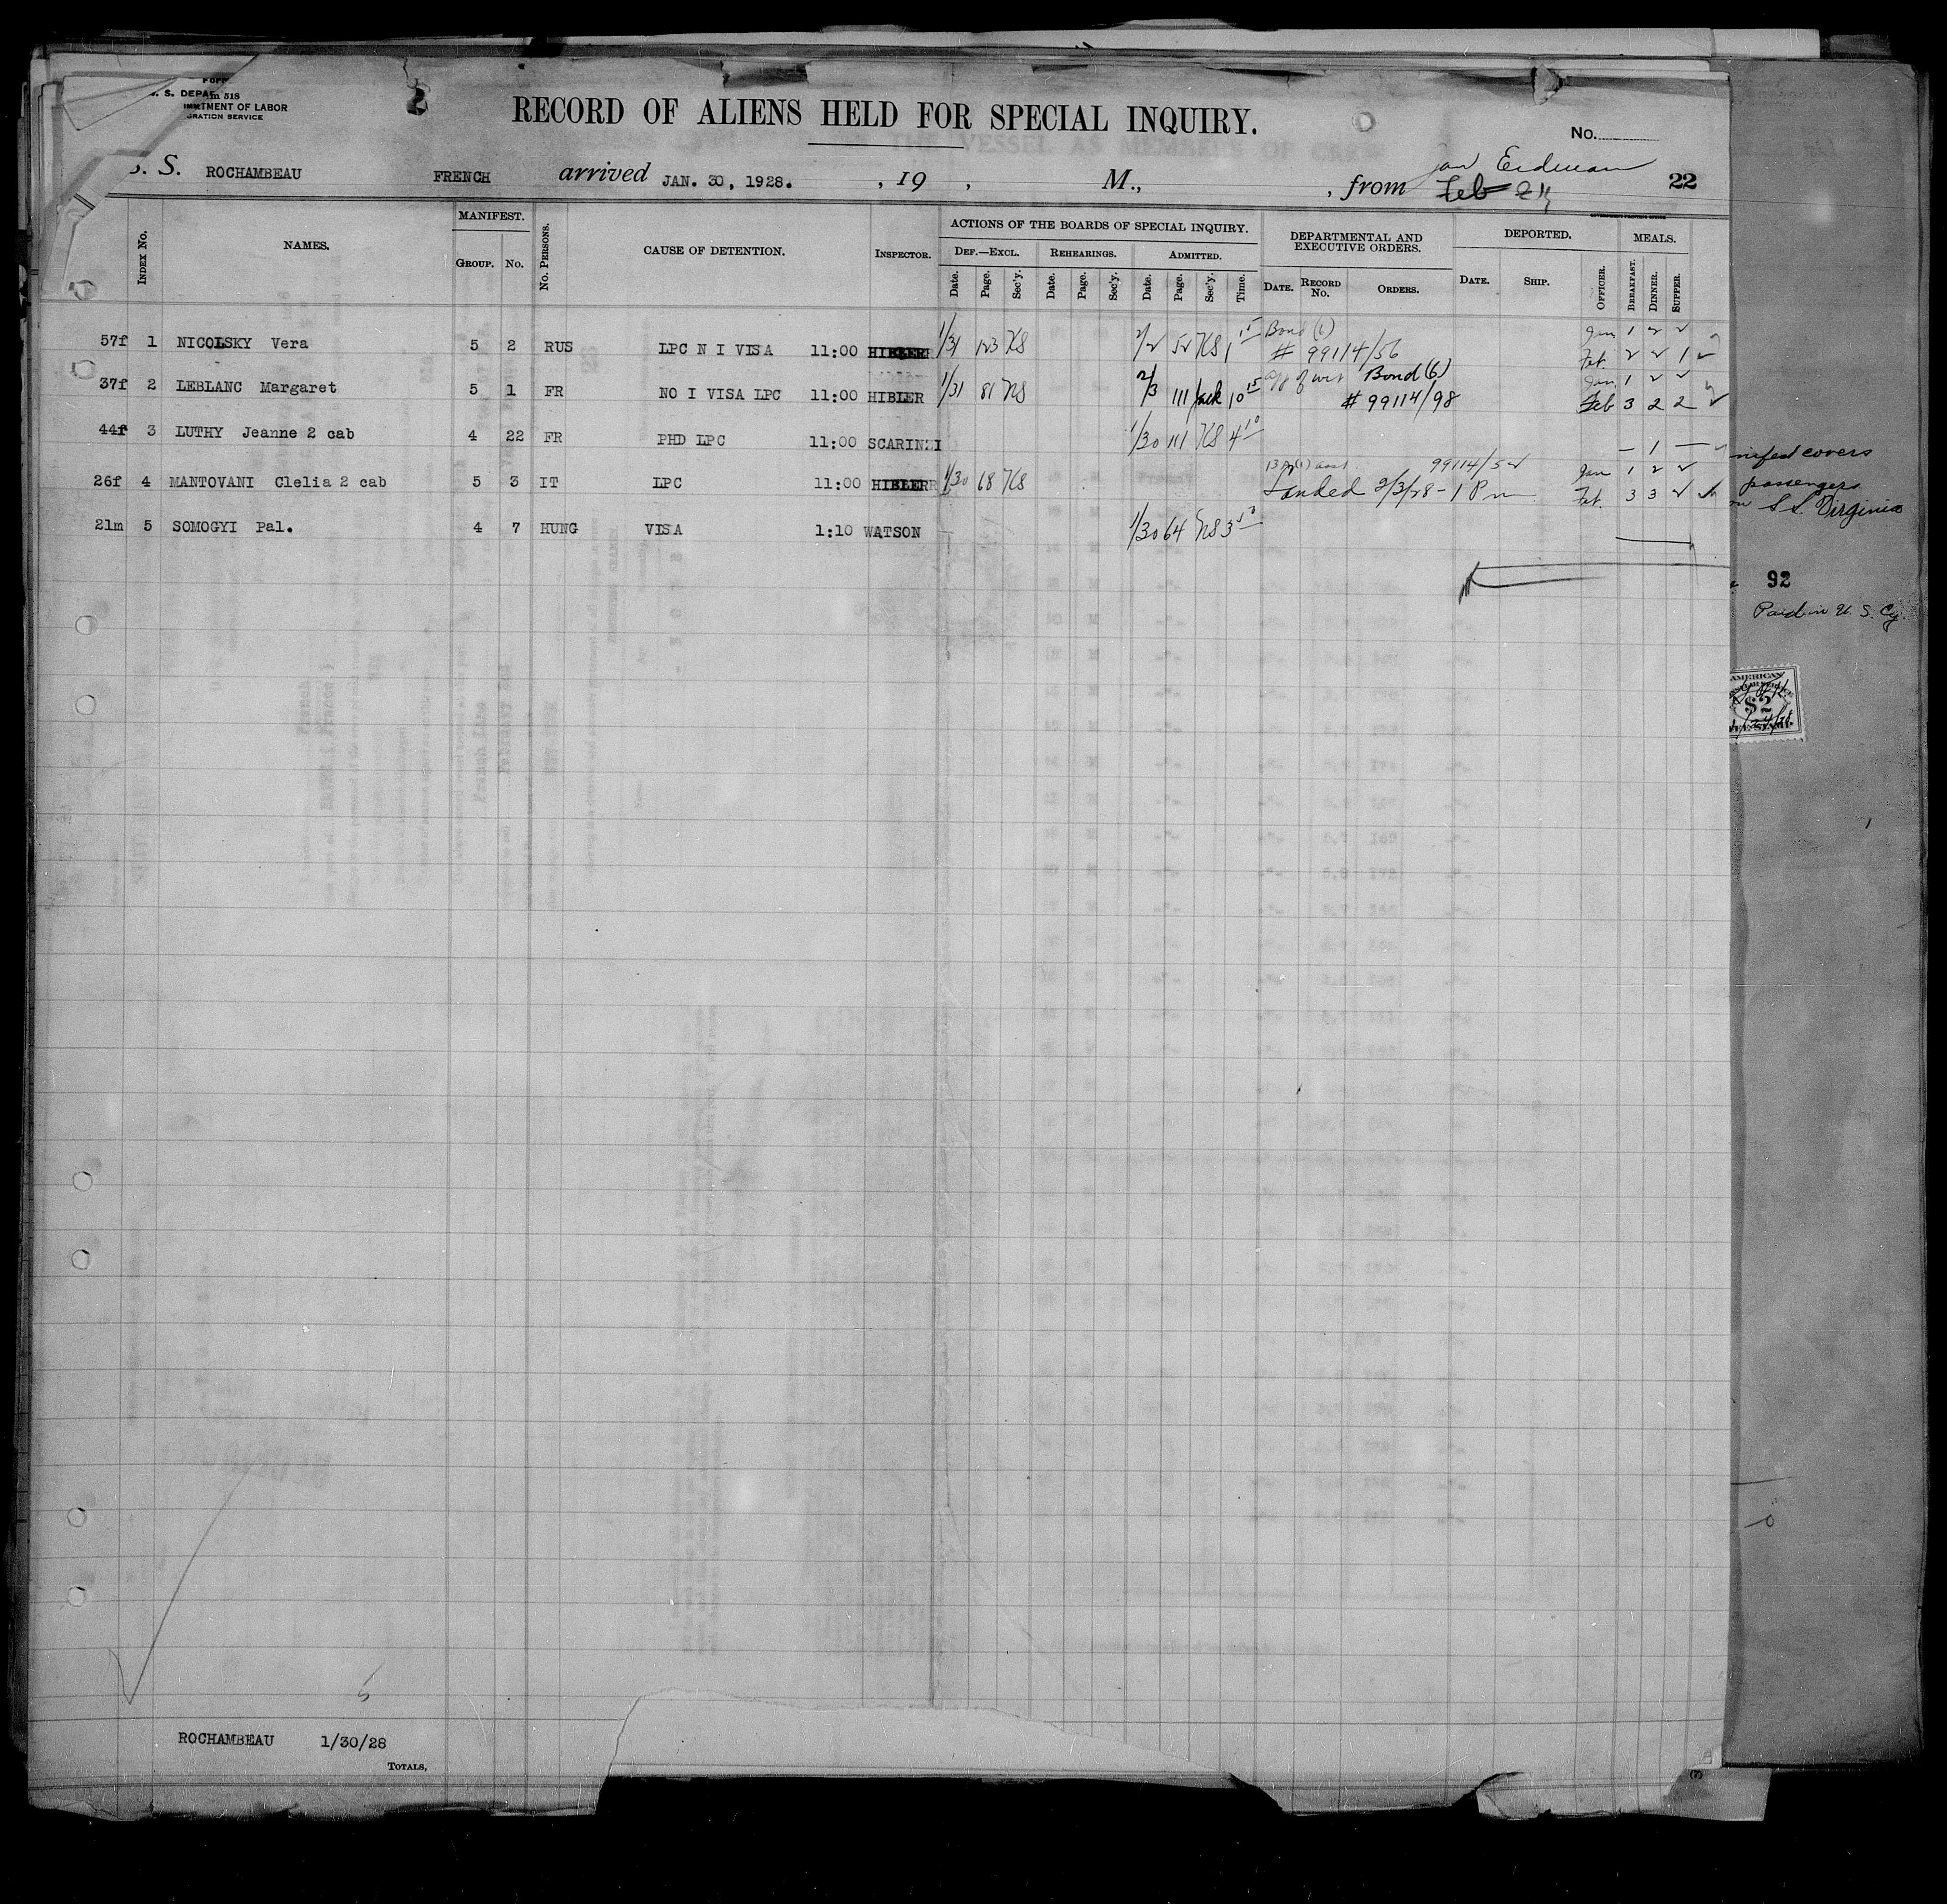 RECORD OF ALIENS HELD FOR SPECIAL INQUIRY.
No.
S. S. ROCHAMBEAU FRENCH arrived JAN. 30, 1928. , 19 , M., , from 22
MANIFEST. ACTIONS OF THE BOARDS OF SPECIAL INQUIRY. DEPARTMENTAL AND EXECUTIVE ORDERS. DEPORTED. MEALS.
Index No. NAMES. Group. No. No. Persons. CAUSE OF DETENTION. Inspector. Def.—Excl. Rehearings. Admitted.
Date. Page. Sec'y. Date. Page. Sec'y. Date. Page. Sec'y. Time. Date. Record No. Orders. Date. Ship. Officer. Breakfast. Dinner. Supper.
57f 1 NICOLSKY Vera 5 2 RUS LPC N I VISA 11:00 HIBLER 1/31 123 2/2 52 Bond (6) Jan 1 2 2
# 99114/56 Feb. 2 2 1
37f 2 LEBLANC Margaret 5 1 FR NO I VISA LPC 11:00 HIBLER 1/31 81 2/3 111 10 15 Bond (6) Jan 1 2 2
# 99114/98 Feb 3 2 2
44f 3 LUTHY Jeanne 2 cab 4 22 FR PHD LPC 11:00 SCARINZI 1/30 111 4 10 — 1 —
26f 4 MANTOVANI Clelia 2 cab 5 3 IT LPC 11:00 HIBLER 1/30 68 99114/52 Jan 1 2 2
Landed 2/3/28 - 1 Pm Feb. 3 3 2
21m 5 SOMOGYI Pal. 4 7 HUNG VISA 1:10 WATSON 1/30 64
covers
passengers
S S. Virginia
92
Paid in U. S. Cy.
AMERICAN
$2
5
ROCHAMBEAU 1/30/28
Totals,